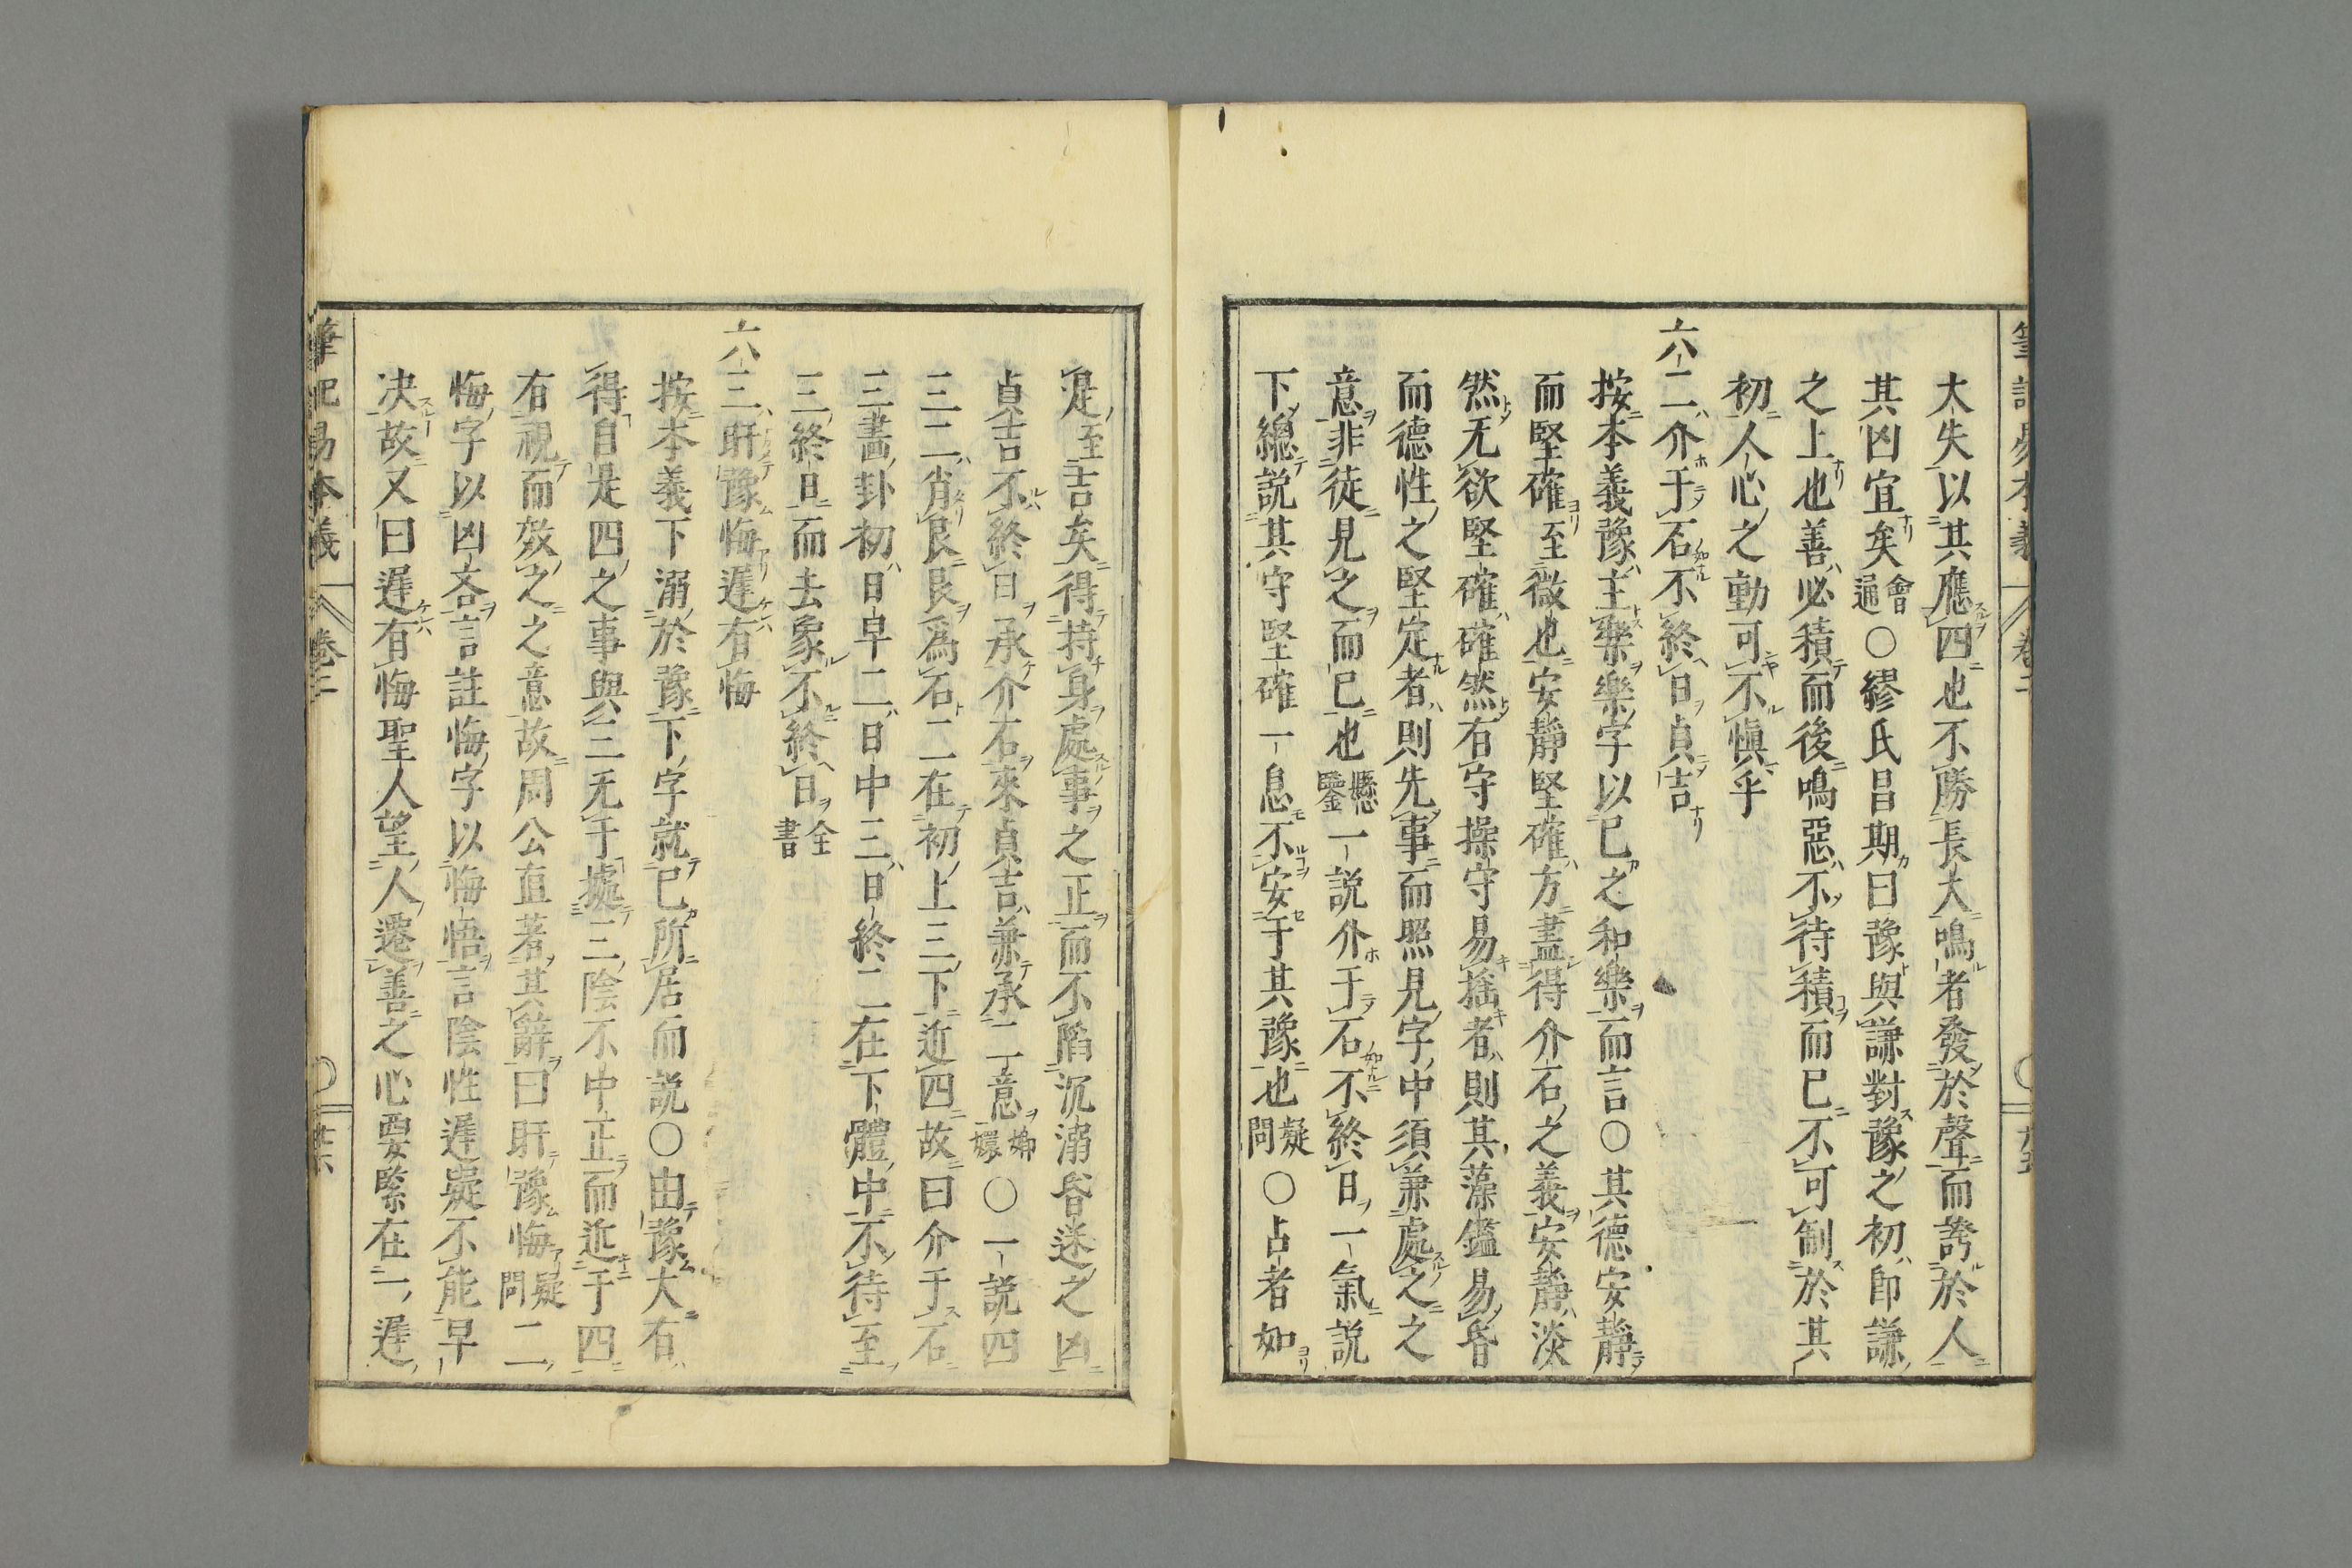 大失以其應四也不勝長大鳴者發於聲而誇於人
其凶宜矣會通〇繆氏昌期曰豫與謙對豫之初即謙
之上也善必積而後鳴惡不待積而已不可制於其
初人心之動可不愼乎
六二介于石不終日貞吉
按本義豫主樂樂字以已之和樂而言〇其德安靜
而堅確至微也安靜堅確方盡得介石之義安靜淡
然无欲堅確確然有守操守易搖者則其藻鑑易昏
而德性之堅定者則先事而照見字中須兼處之之
意非徒見之而已也懸鑒一説介于石不終日一氣説
下總説其守堅確一息不安于其豫也疑問〇占者如
是至吉矣得持身處事之正而不陷沉溺昏迷之凶
貞吉不終日承介石來貞吉兼承二意〇一説四
三二肖艮艮爲石二在初上三下近四故曰介于石
三畫卦初日早二日中三日終二在下體中不待至
三終日而去象不終日全書
六三盱豫悔遲有悔
按本義下溺於豫下字就已所居而説〇由豫大有
得自是四之事與三无于處三陰不中正而近于四
有視而效之之意故周公直著其辭曰盱豫悔疑問二
悔字以凶吝言註悔字以悔悟言陰性遲疑不能早
决故又曰遲有悔聖人望人遷善之心要緊在一遲
筆記易本義 卷二